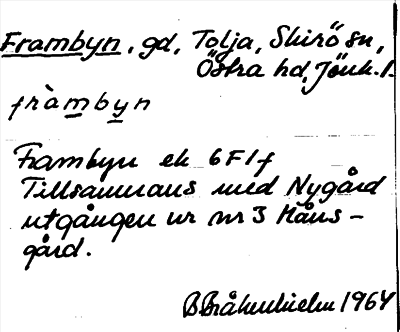 Frambyn, gd, Tolja, Skirö sn,
Östra hd, Jönk. l.
fràmbyn
Frambyn ek 6F1f
Tillsammans med Nygård
utgången ur nr 3 Måns-
gård.
B Bråkenhielm 1964